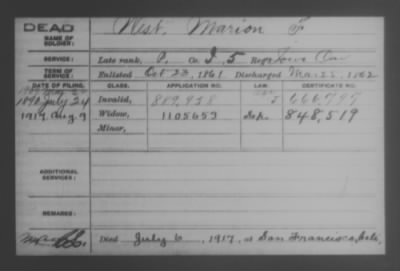 DEAD
NAME OF SOLDIER: West, Marion F
SERVICE: Late rank, P, Co. I, 5 Reg't Iowa Cav
TERM OF SERVICE: Enlisted Oct 23, 1861, Discharged Mar 25, 1862
DATE OF FILING. CLASS. APPLICATION NO. LAW. CERTIFICATE NO.
1890 July 24 Invalid, 889,958 666,797
1917, Aug. 9 Widow, 1105653 848,519
Minor,
ADDITIONAL SERVICES:
REMARKS:
Died July 6, 1917, at San Francisco, Calif,